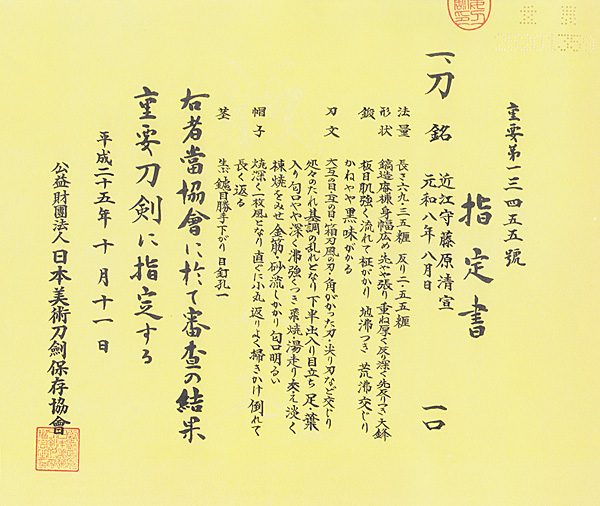 重要第一三四五五號
指定書
一、刀 銘 近江守藤原清宣 一口
元和八年八月日
法量 長さ六九・三五糎 反り二・五五糎
形状 鎬造庵棟身幅広め 先やや張り重ね厚く反り深く先反りつき 大鋒
鍛 板目肌強く流れて柾がかり 地沸つき 荒沸交じり
かねやや黒味がかる
刃文 大互の目・互の目・箱刃風の刃・角がかった刃・尖り刃など交じり
処々のたれ基調の乱れとなり 下半出入り目立ち 足・葉
入り 匂口やや深く沸強くつき 飛焼・湯走り交え 淡く
棟焼をみせ 金筋・砂流しかかり 匂口明るい
帽子 焼深く一枚風となり 直ぐに小丸 返りよく掃きかけ 倒れて
長く返る
茎 生 鑢目勝手下がり 目釘孔一
右者當協會に於て審査の結果
重要刀剣に指定する
平成二十五年十月十一日
公益財團法人日本美術刀劍保存協會